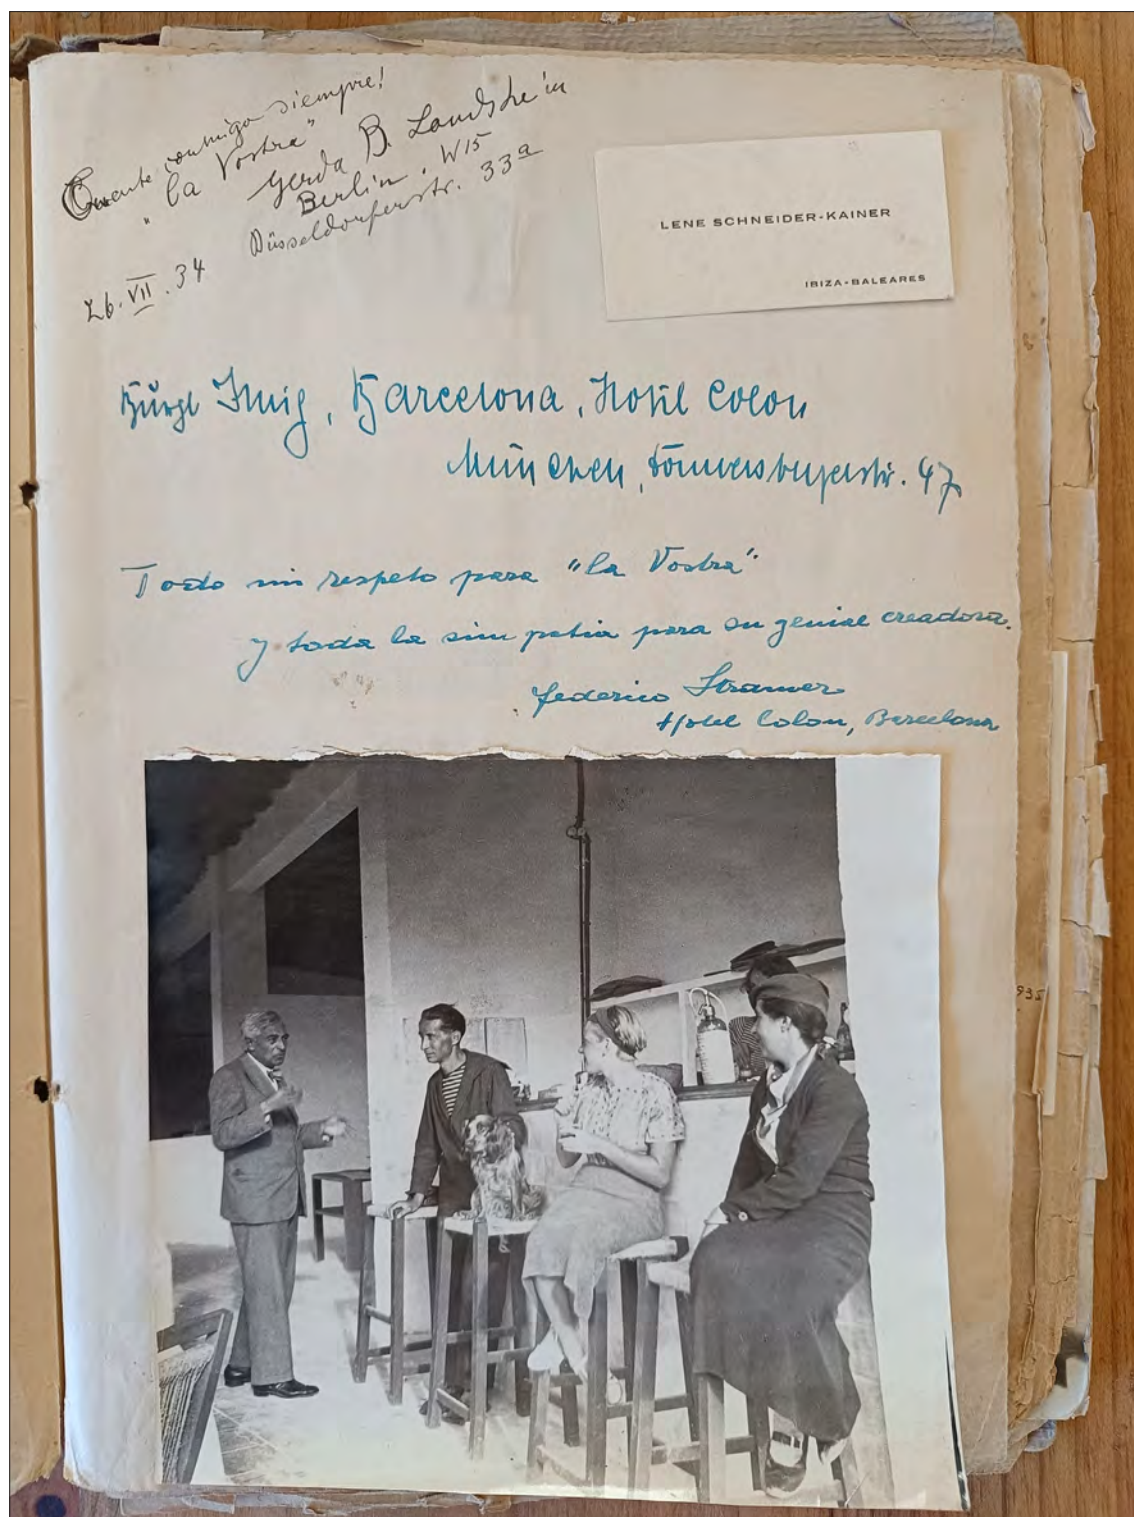 Cuente conmigo siempre!
"la Vostra"
Gerda B. Landshe in
Berlin. W15
Düsseldorferstr. 33a
26.VII.34
LENE SCHNEIDER-KAINER
IBIZA-BALEARES
Barcelona, Hotel Colon
München, 47
Todo mi respeto para "la Vostra"
y toda la simpatia para su genial creadora.
Federico Stramer
Hotel Colon, Barcelona
935